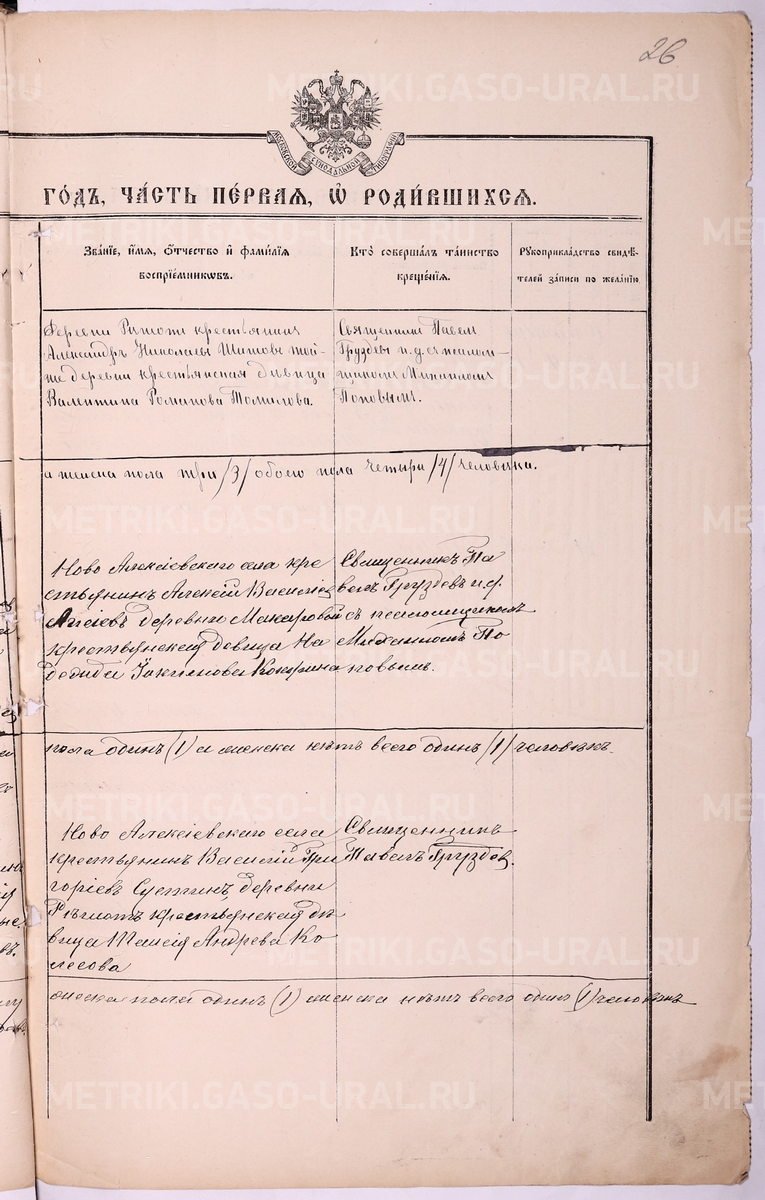 26
МОСКОВСКОЙ СѴНОДАЛЬНОЙ ТИПОГРАФІИ
ГО́ДЪ, ЧА́СТЬ ПЕ́РВАЯ, Ѽ РОДИ́ВШИХСЯ.
Зва́нїе, и҆́мя, ѻ҆́тчество и҆ фами́лїя
воспрїе́мникѡвъ.
Кто̀ соверша́лъ та́инство
креще́нїя.
Рꙋкоприкла́дство свидѣ́-
телей за́писи по жела́нїю
Деревни крестьянинъ
Александръ Николаевъ Шитовъ той-
же деревни крестьянская дѣвица
Валентина Романова Томилова.
Священникъ Павелъ
Груздевъ и.д. съ псалом-
щикомъ Михаиломъ
Поповымъ.
а женска пола три /3/ обоего пола четыри /4/ человѣка.
Ново Алексіевскаго села кре
стьянинъ Алексій Василіев
деревни Макаровой
крестьянская девица На
дежда Іакимова
Священникъ Па
велъ Груздевъ и.д.
съ псаломщикомъ
Михаиломъ По
повымъ.
пола одинъ (1) а женска нѣтъ всего одинъ (1) человѣкъ.
Ново Алексіевскаго села
крестьянинъ Василій Гри
горіевъ деревни
крестьянская дѣ
вица Таисія Андрева Ко
лесова
Священникъ
Павелъ Груздев.
пола одинъ (1) женска нѣтъ всего одинъ (1) человѣкъ
METRIKI.GASO-URAL.RU